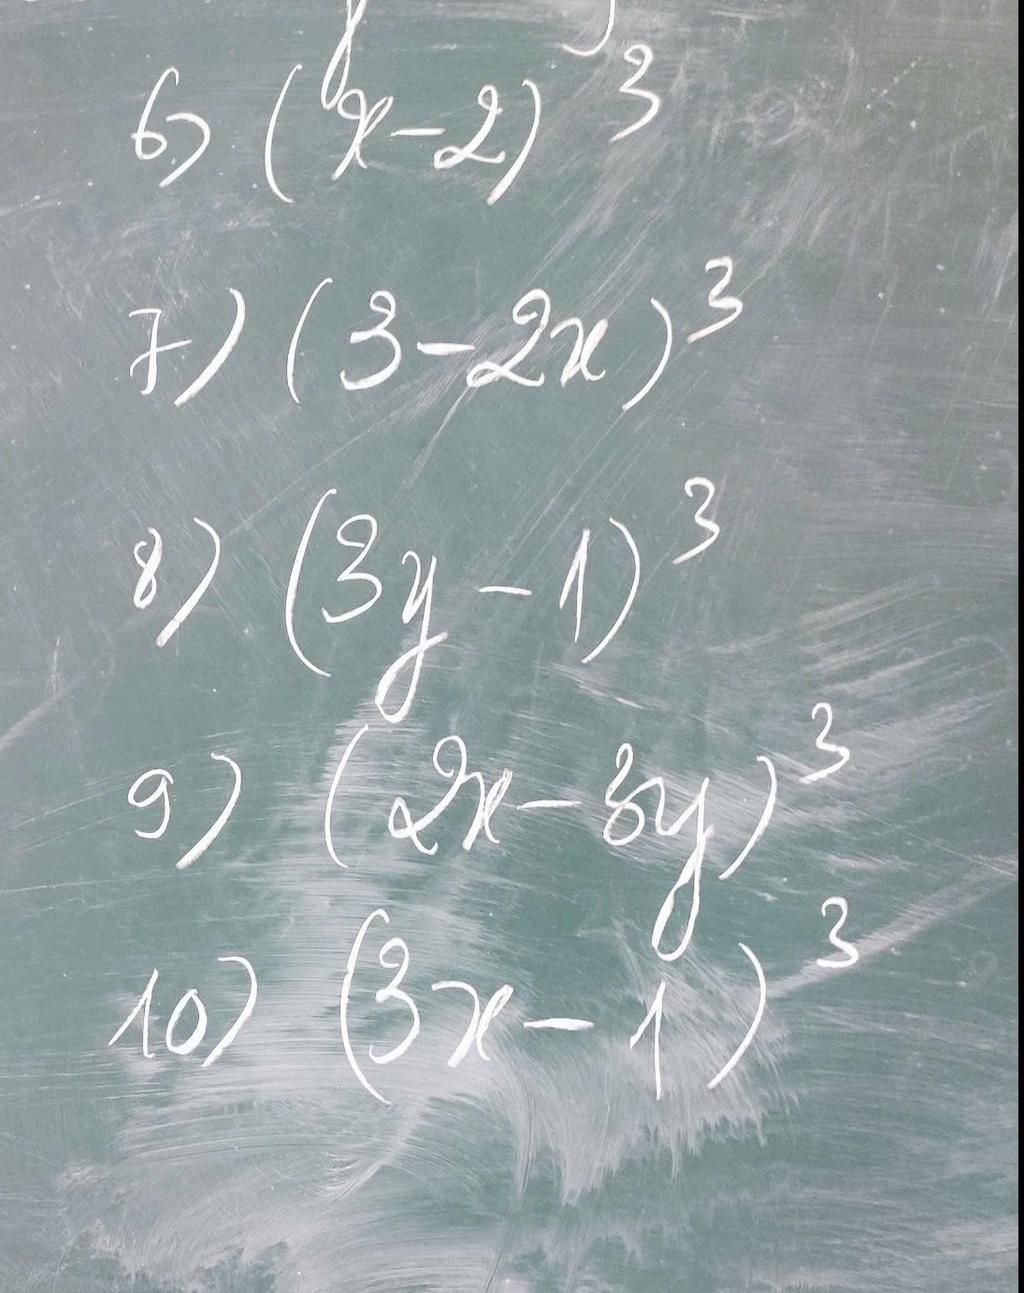 6) (x-2)³
7) (3-2x)³
8) (3y-1)³
9) (2x-3y)³
10) (3x-1)³